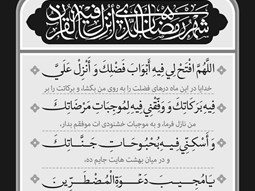 شهر رمضان الذی انزل فیه القرآن
اللَّهُمَّ افْتَحْ لِي فِيهِ أَبْوَابَ فَضْلِكَ وَ أَنْزِلْ عَلَيَّ
خدایا در این ماه درهای فضلت را به روی من بگشا، و برکاتت را بر
فِيهِ بَرَكَاتِكَ وَ وَفِّقْنِي فِيهِ لِمُوجِبَاتِ مَرْضَاتِكَ
من نازل فرما، و به موجبات خشنودی ات موفقم بدار،
وَ أَسْكِنِّي فِيهِ بُحْبُوحَاتِ جَنَّاتِكَ
و در میان بهشت هایت جایم ده،
يَا مُجِيبَ دَعْوَةِ الْمُضْطَرِّينَ